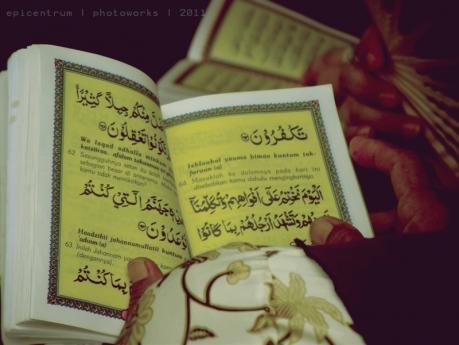 epicentrum | photoworks | 2011
مِنْكُمْ جِبِلًّا كَثِيْرًا
تَكُوْنُوْا تَعْقِلُوْنَ
Wa laqad adhalla minkum
katsiiran, afalam takuunuu
62 Sesungguhnya
sebagian besar di antara
kamu tidak memikirkan?
جَهَنَّمُ الَّتِيْ كُنْتُمْ
تُوْعَدُوْنَ
Haadzihii jahannamullatii kuntum
63 Inilah Jahannam
(dengannya).
بِمَا كُنْتُمْ
تَكْفُرُوْنَ
Ishlauhal yauma bimaa kuntum tak-
furuun (a)
64 Masuklah ke dalamnya pada hari ini
disebabkan kamu dahulu mengingkarinya.
اَلْيَوْمَ نَخْتِمُ عَلٰٓى اَفْوَاهِهِمْ وَتُكَلِّمُنَآ
وَتَشْهَدُ اَرْجُلُهُمْ بِمَا كَانُوْا